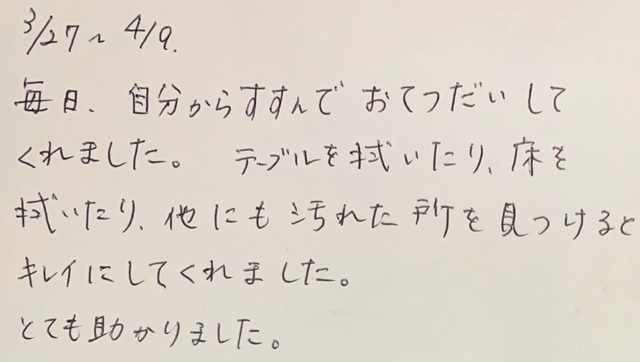 3/27～4/9.
毎日、自分からすすんで おてつだいして
くれました。 テーブルを拭いたり、床を
拭いたり、他にも汚れた所を見つけると
キレイにしてくれました。
とても助かりました。